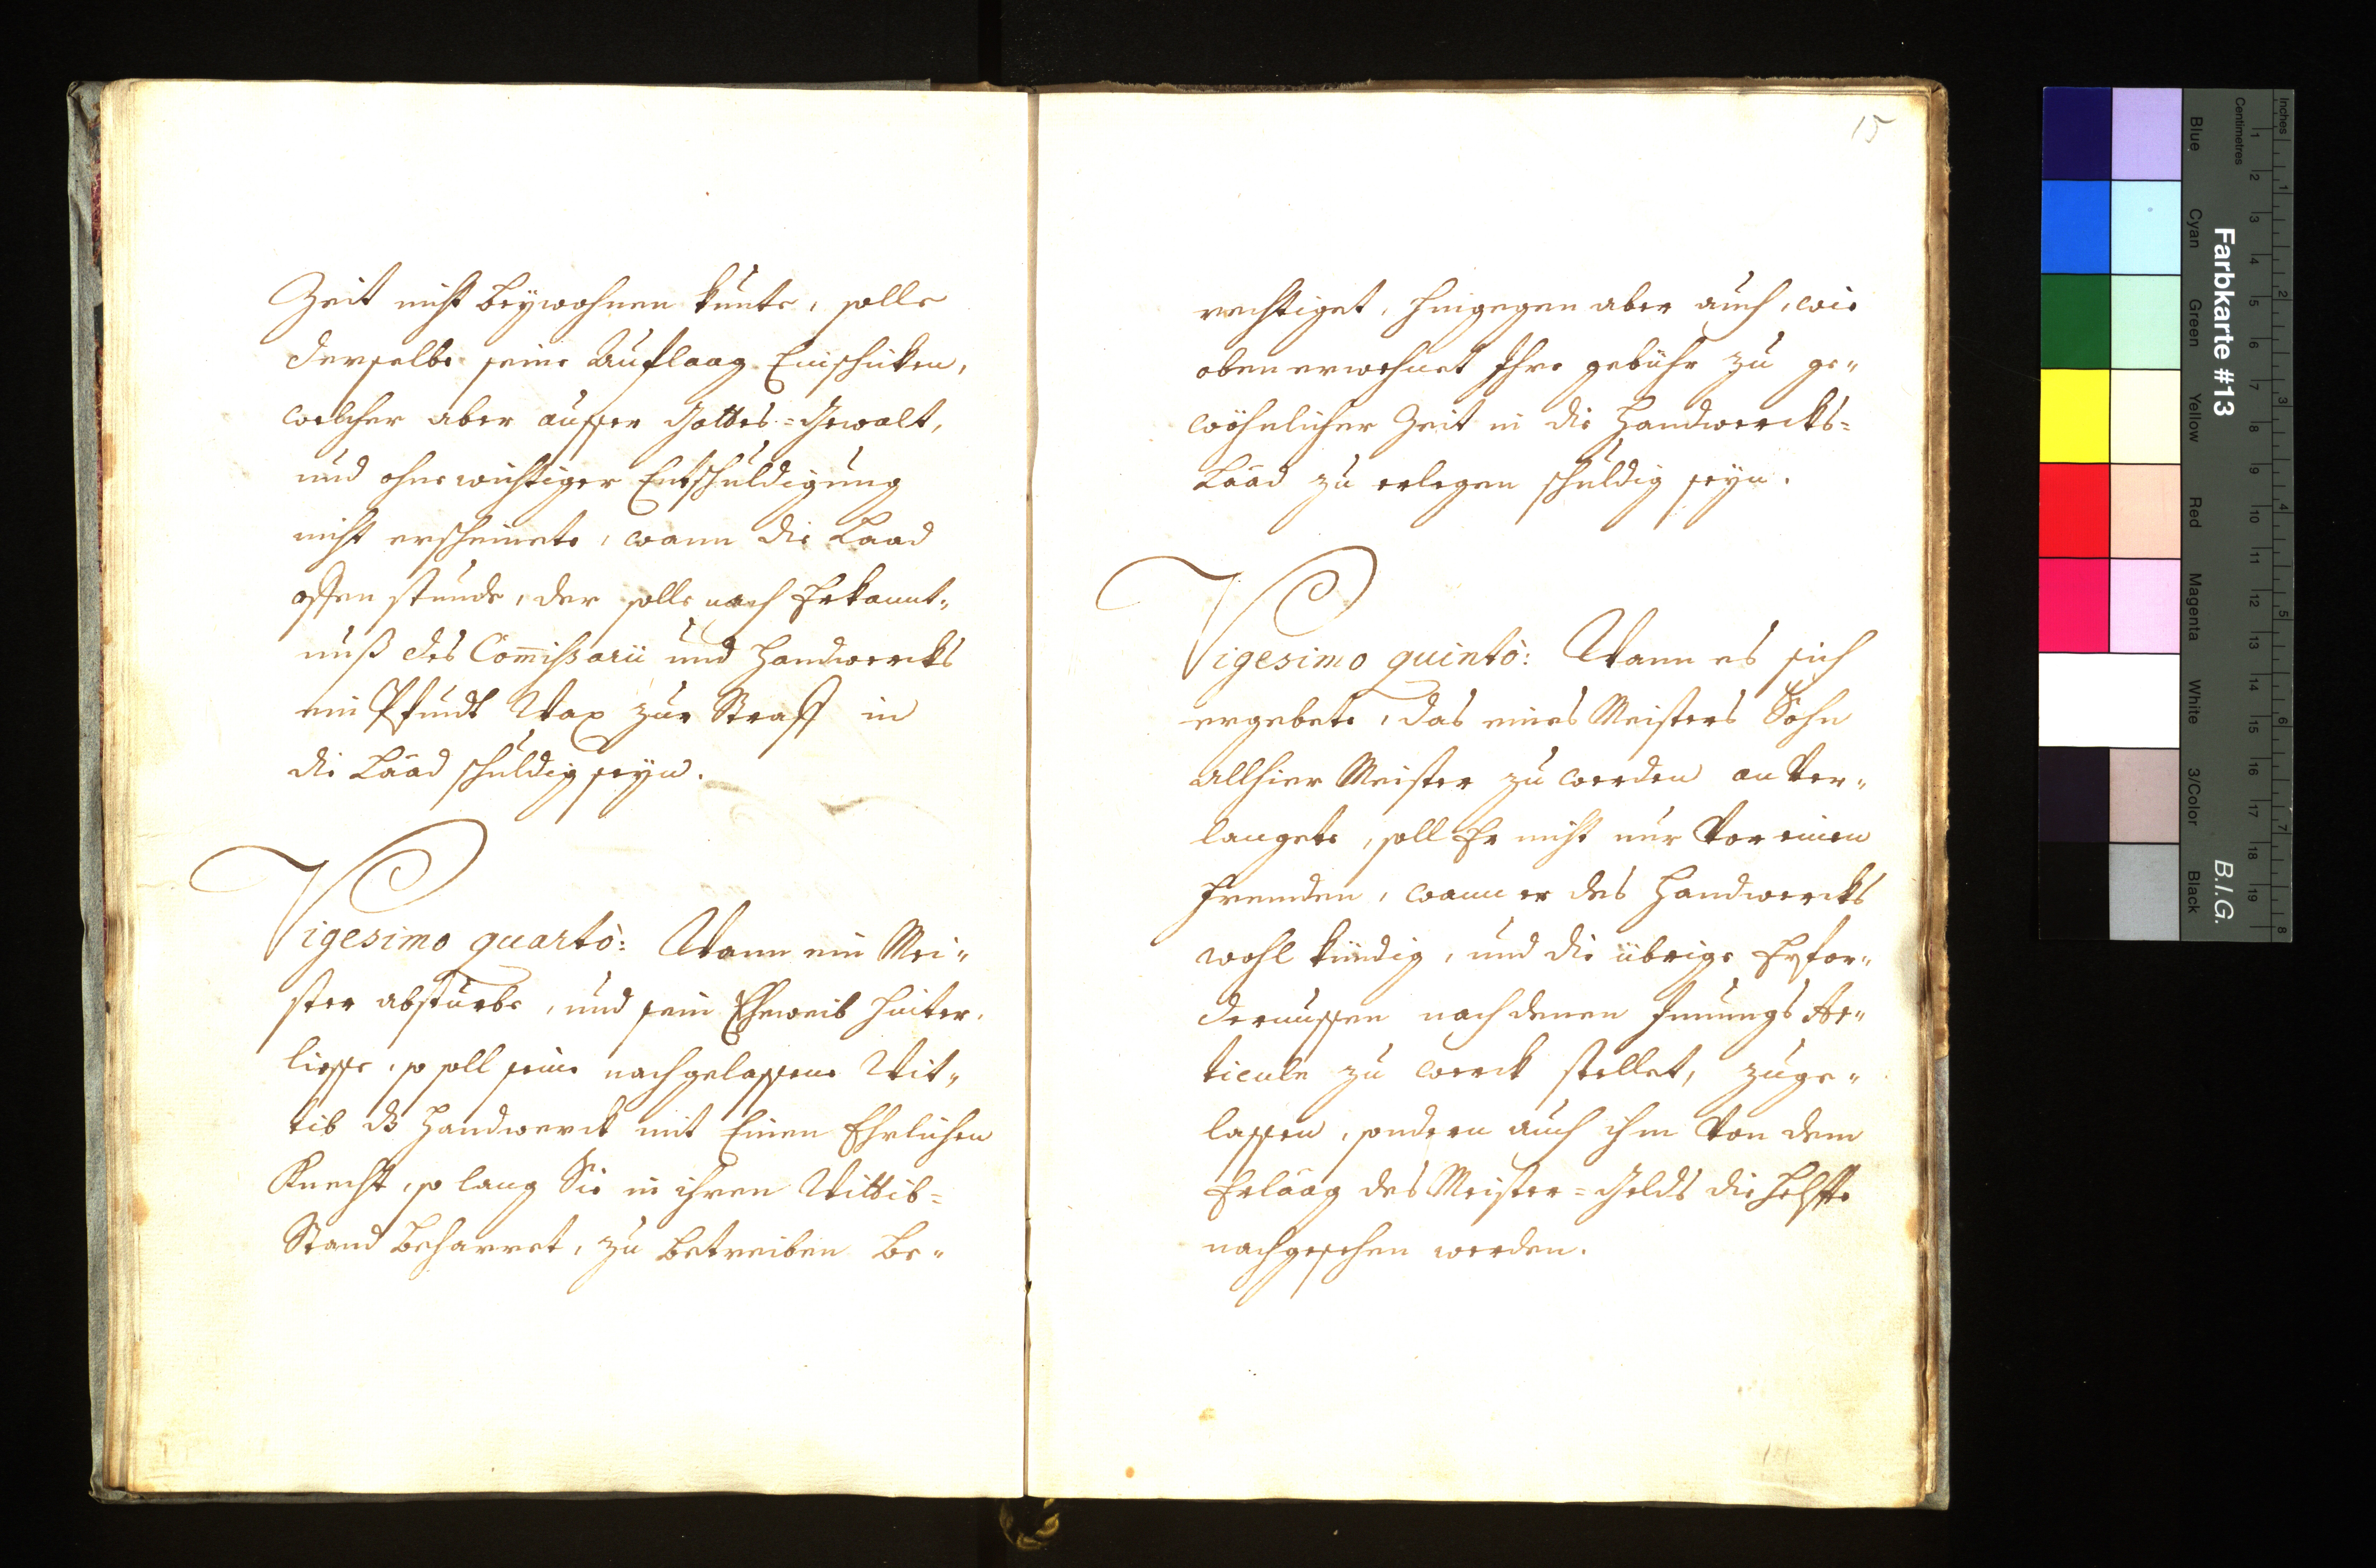 Zeit nicht beÿwohnen kunte, solle
derselbe seine Auflaag Einschicken,
welcher aber ausser Gottes=Gewalt,
und ohne wichtiger Entschuldigung
nicht erscheinete, wann die Laad
offen stunde, der solle nach Erkannt„
nuß des Com̅ißarii und Handwercks
ein Pfundt Wax zur Straff in
die Laad schuldig seÿn.
Vigesimo quartò: Wann ein Mei„
ster absturbe, und sein Eheweib hinter„
liesse, so soll seine nachgelassene Wit„
tib dß Handwerck mit Einen Ehrlichen
Knecht, so lang Sie in ihren Wittib=
Stand beharret, zu betreiben be„
15
rechtiget, hingegen aber auch, wie
oben erwehnet Ihre gebühr zu ge„
wöhnlicher Zeit in die Handwercks=
Laad zu erlegen schuldig seÿn.
Vigesimo quintò: Wann es sich
ergebete, das eines Meisters Sohn
allhier Meister zu werden an Ver„
langete, soll Er nicht nur Vor einen
Fremden, wann er des Handwercks
wohl kündig, und die übrige Erfor„
dernussen nach denen Innungs Ar„
ticuln zu werck stellet, zuge„
lassen, sondern auch ihm Von dem
Erlaag des Meister=Gelds die Helffte
nachgesehen werden.
Farbkarte #13
B.I.G.
Inches
Centimetres
1 2 3 4 5 6 7 8 9 10 11 12 13 14 15 16 17 18 19
1 2 3 4 5 6 7 8
Blue
Cyan
Green
Yellow
Red
Magenta
White
3/Color
Black